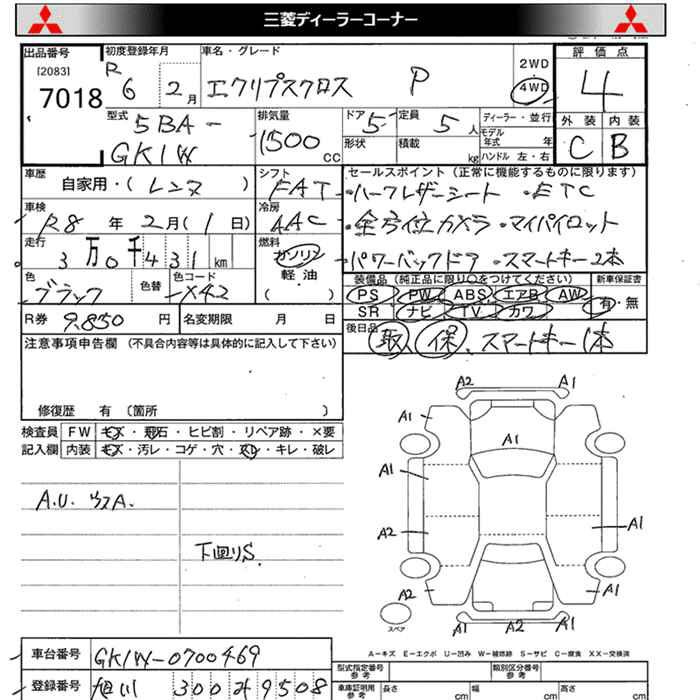 三菱ディーラーコーナー
出品番号 [2083] 7018
初度登録年月 R6 2月
車名・グレード エクリプスクロス P
2WD
4WD
評価点 4
外装 C 内装 B
型式 5BA-GK1W
排気量 1500 CC
ドア 5 定員 5人
形状 積載 kg
ディーラー・並行
モデル年式 年
ハンドル 左・右
車歴 自家用・(レンタ)
シフト FAT
車検 R8年2月(1日)
冷房 AAC
走行 3万0千431km
燃料 ガソリン 軽油 ( )
色 ブラック 色替 色コード X42
セールスポイント(正常に機能するものに限ります)
・ハーフレザーシート ・ETC
・全方位カメラ ・マイパイロット
・パワーバックドア ・スマートキー2本
装備品(純正品に限り○をつけてください)
PS PW ABS エアB AW
SR ナビ TV カワ
新車保証書 有・無
R券 9,850円 名変期限 月 日
後日品 取、保、スマートキー1本
注意事項申告欄(不具合内容等は具体的に記入して下さい)
修復歴 有(箇所 )
検査員記入欄
FW キズ・飛石・ヒビ割・リペア跡・×要
内装 キズ・汚レ・コゲ・穴・スレ・キレ・破レ
A.U. ウスA.
下回りS.
A2 A1
A1 A1 A1
A1 A1
A2 A1
A2 A1
A1 A2 A1
スペア
A-キズ E-エクボ U-凹み W-補修跡 S-サビ C-腐食 XX-交換済
車台番号 GK1W-0700469
登録番号 旭川 300 9508
型式指定番号 参考 類別区分番号 参考
車庫証明用 参考 長さ cm 幅 cm 高さ cm